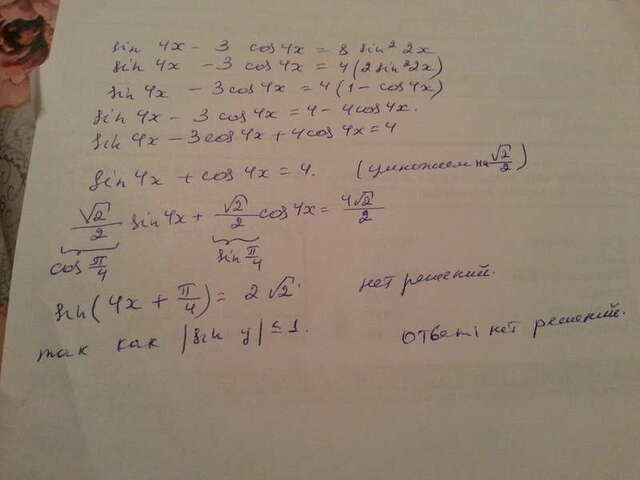 sin 4x - 3 cos 4x = 8 sin² 2x
sin 4x - 3 cos 4x = 4(2 sin² 2x)
sin 4x - 3 cos 4x = 4(1 - cos 4x)
sin 4x - 3 cos 4x = 4 - 4 cos 4x.
sin 4x - 3 cos 4x + 4 cos 4x = 4
sin 4x + cos 4x = 4. (умножаем на √2/2)
√2/2 sin 4x + √2/2 cos 4x = 4√2/2
cos π/4 sin π/4
sin(4x + π/4) = 2√2. нет решений.
так как |sin y| ≤ 1. ответ: нет решений.